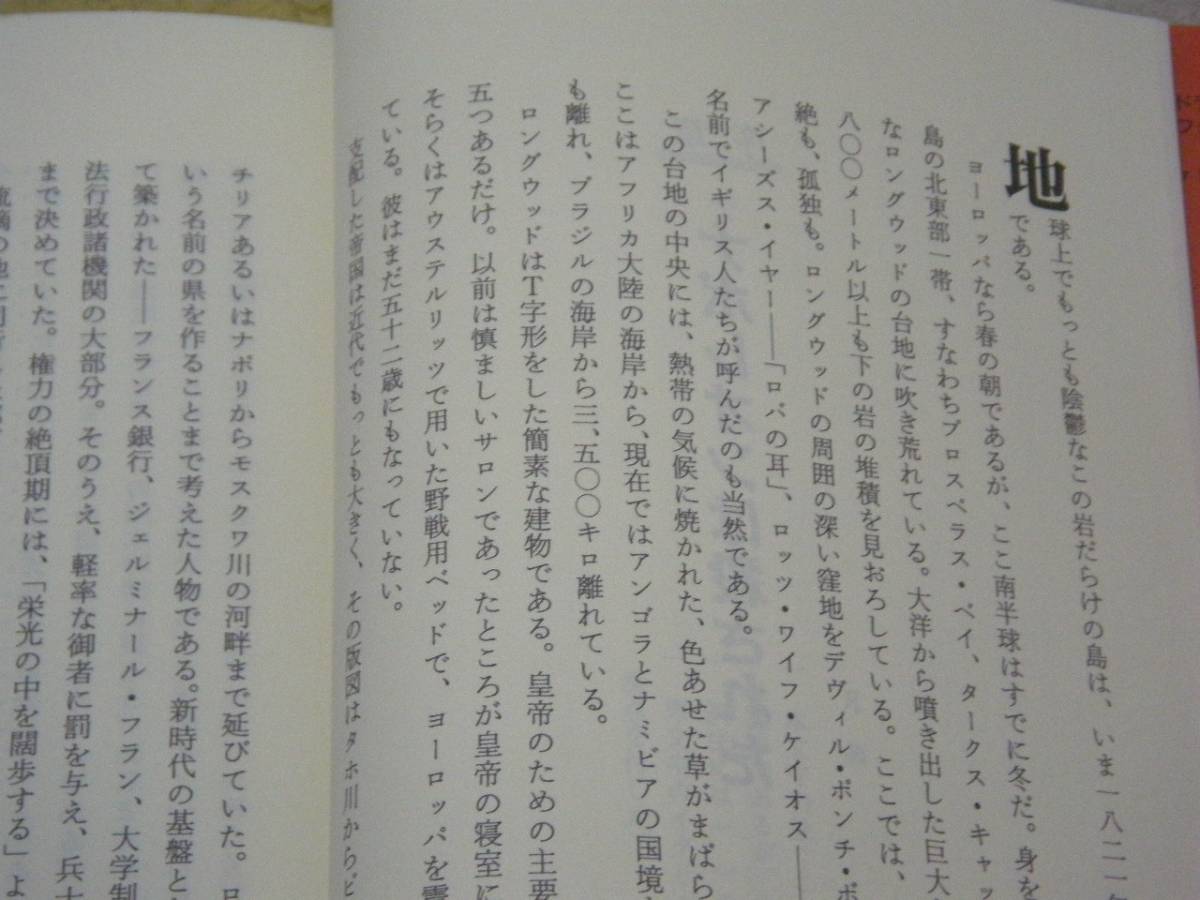 地球上でもっとも陰鬱なこの岩だらけの島は、いま一八二一年
である。
ヨーロッパなら春の朝であるが、ここ南半球はすでに冬だ。身を
島の北東部一帯、すなわちプロスペラス・ベイ、タークス・キャッ
なロングウッドの台地に吹き荒れている。大洋から噴き出した巨大
八〇〇メートル以上も下の岩の堆積を見おろしている。ここでは、
絶も、孤独も。ロングウッドの周囲の深い窪地をデヴィル・ポンチ・ボ
アシーズス・イヤー――「ロバの耳」、ロッツ・ワイフ・ケイオス――
名前でイギリス人たちが呼んだのも当然である。
この台地の中央には、熱帯の気候に焼かれた、色あせた草がまばら
ここはアフリカ大陸の海岸から、現在ではアンゴラとナミビアの国境
も離れ、ブラジルの海岸から三、五〇〇キロ離れている。
ロングウッドはT字形をした簡素な建物である。皇帝のための主要
五つあるだけ。以前は慎ましいサロンであったところが皇帝の寝室に
そらくはアウステルリッツで用いた野戦用ベッドで、ヨーロッパを震
ている。彼はまだ五十二歳にもなっていない。
支配した帝国は近代でもっとも大きく、その版図はタホ川から
チリアあるいはナポリからモスクワ川の河畔まで延びていた。
いう名前の県を作ることまで考えた人物である。新時代の基盤と
て築かれた――フランス銀行、ジェルミナール・フラン、大学制
法行政諸機関の大部分。そのうえ、軽率な御者に罰を与え、兵士
まで決めていた。権力の絶頂期には、「栄光の中を闊歩する」よ